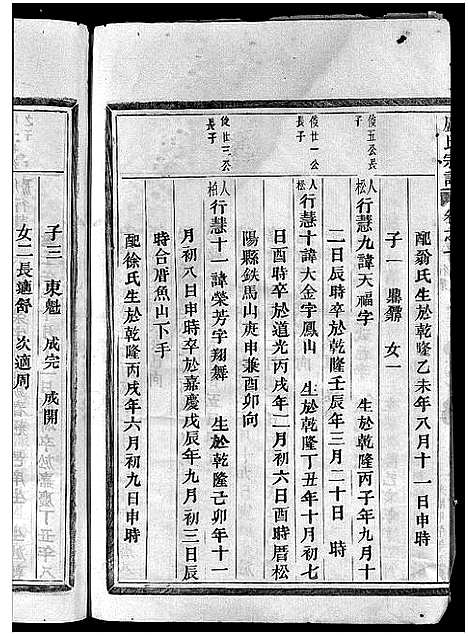 氏宗譜
配翁氏生於乾隆乙未年八月十一日申時
子一 鼎鑣 女一
俊五公長子
人松行慧九諱天福字 生於乾隆丙子年九月十
二日辰時卒於乾隆壬辰年三月二十日 時
俊廿一公長子
人松行慧十諱大金字鳳山 生於乾隆丁丑年十月初七
日酉時卒於道光丙戌年二月初六日酉時厝松
陽縣鉄馬山庚申兼酉卯向
俊廿三公長子
人柏行慧十一諱榮芳字翔舞 生於乾隆己卯年十一
月初八日申時卒於嘉慶戊辰年九月初三日辰
時合厝魚山下手
配徐氏生於乾隆丙戌年六月初九日申時
子三 東魁 成完 成開
女二長適舒 次適周